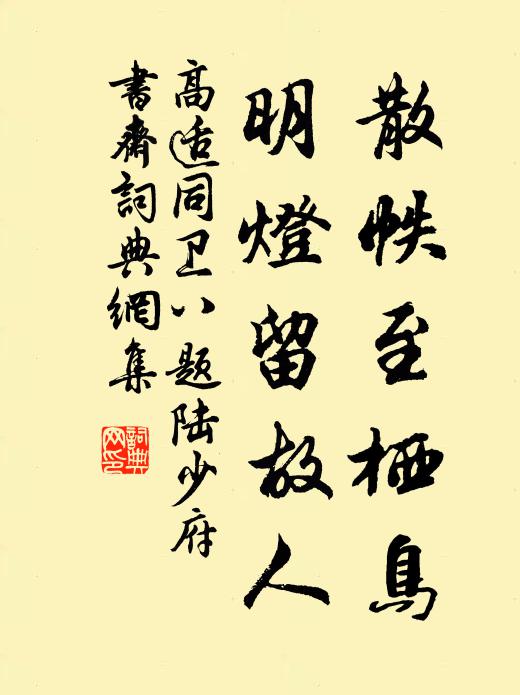 散帙至栖鳥
明燈留故人
高适同卫八题陆少府
書齋詞典網集
詞典網印